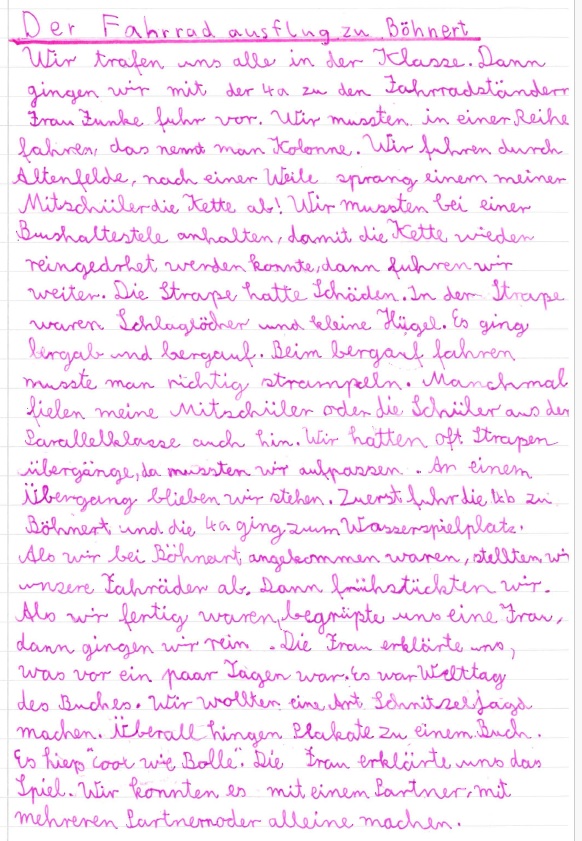 Der Fahrrad ausflug zu Böhnert
Wir trafen uns alle in der Klasse. Dann
gingen wir mit der 4a zu den Fahrradständern
Frau Funke fuhr vor. Wir mussten in einer Reihe
fahren, das nennt man Kolonne. Wir fuhren durch
Altenfelde, nach einer Weile sprang einem meiner
Mitschüler die Kette ab! Wir mussten bei einer
Bushaltestele anhalten, damit die Kette wieder
reingedrhet werden konnte, dann fuhren wir
weiter. Die Straße hatte Schäden. In der Straße
waren Schlaglöcher und kleine Hügel. Es ging
bergab und bergauf. Beim bergauf fahren
musste man richtig strampeln. Manchmal
fielen meine Mitschüler oder die Schüler aus der
Parallelklasse auch hin. Wir hatten oft Straßen
übergänge, da mussten wir aufpassen. An einem
Übergang blieben wir stehen. Zuerst fuhr die 4b zu
Böhnert und die 4a ging zum Wasserspielplatz.
Als wir bei Böhnert angekommen waren, stellten wir
unsere Fahräder ab. Dann frühstückten wir.
Als wir fertig waren, begrüßte uns eine Frau,
dann gingen wir rein. Die Frau erklärte uns,
was vor ein paar Tagen war. Es war Welttag
des Buches. Wir wollten eine Art Schnitzeljagd
machen. Überall hingen Plakate zu einem Buch.
Es hieß "cool wie Bolle". Die Frau erklärte uns das
Spiel. Wir konnten es mit einem Partner, mit
mehreren Partnern oder alleine machen.